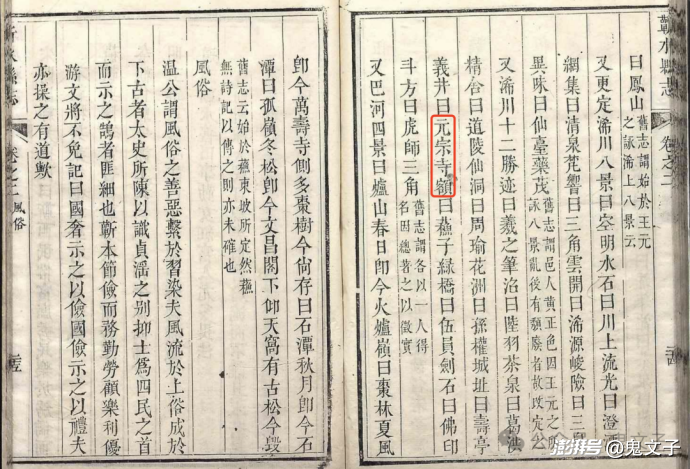 蘄水縣志
卷之二
曰鳳山 舊志謂始於王元之詠浠上八景云
又更定浠川八景曰空明水石曰川上流光曰澄
網集曰清泉梵響曰三角雲開曰浠源峻險曰三
異味曰仙臺藥茂 舊志謂邑人黃正色因王元之
又浠川十二勝迹曰羲之筆沼曰陸羽茶泉曰葛洪
精台曰道陵仙洞曰周瑜花洲曰孫權城址曰壽亭
義井曰元宗寺額曰蘓子綠橋曰伍員劍石曰佛印
斗方曰虎師三角 舊志謂各以一人得名因總著之以傲實
又巴河四景曰爐山春日卽今火爐嶺曰棗林夏風
卽今萬壽寺側多棗樹今尙存曰石潭秋月卽今石
潭曰孤嶺冬松卽今文昌閣下仰天窩有古松今毀
舊志云始於蘓東坡所定然蘓無詩記以傳之則亦未確也
風俗
溫公謂風俗之善惡繫於習染夫風流於上俗成於
下古者太史所陳以識貞淫之别抑士爲四民之首
而示之鵠者匪細也蘄本節儉而務勤勞顧樂利優
游文將不免記曰國奢示之以儉國儉示之以禮夫
亦操之有道歟
卷之二 風俗
澎湃号 @鬼文子